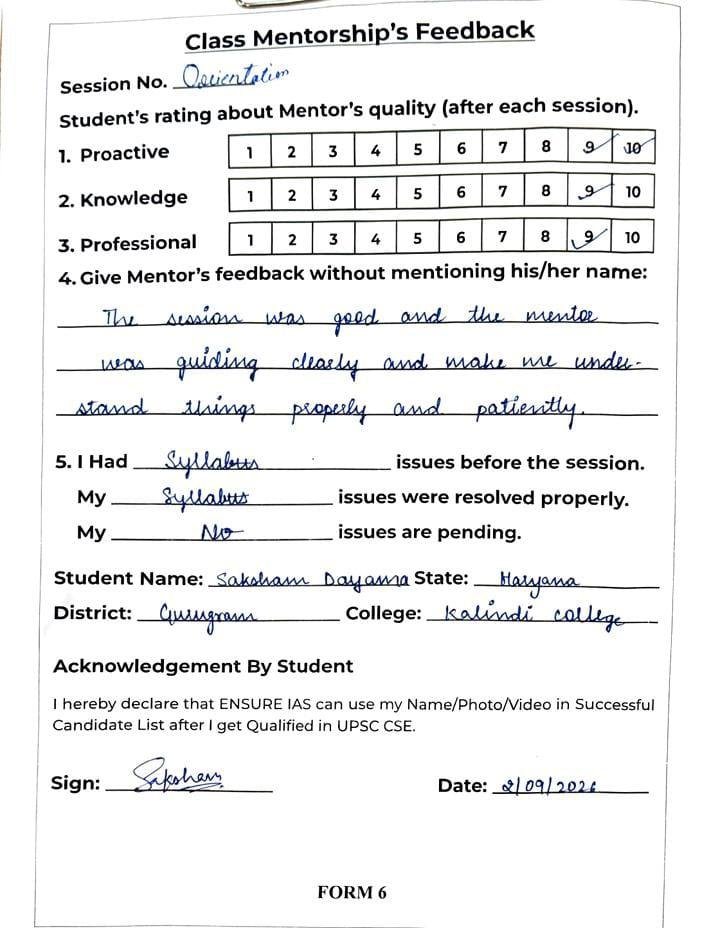 Class Mentorship's Feedback
Session No. Orientation
Student's rating about Mentor's quality (after each session).
1. Proactive 1 2 3 4 5 6 7 8 9 10
2. Knowledge 1 2 3 4 5 6 7 8 9 10
3. Professional 1 2 3 4 5 6 7 8 9 10
4. Give Mentor's feedback without mentioning his/her name:
The session was good and the mentor
was guiding clearly and make me under-
stand things properly and patiently.
5. I Had Syllabus issues before the session.
My Syllabus issues were resolved properly.
My No issues are pending.
Student Name: Saksham Dayama State: Haryana
District: Gurugram College: Kalindi college
Acknowledgement By Student
I hereby declare that ENSURE IAS can use my Name/Photo/Video in Successful
Candidate List after I get Qualified in UPSC CSE.
Sign: Saksham Date: 2/09/2026
FORM 6